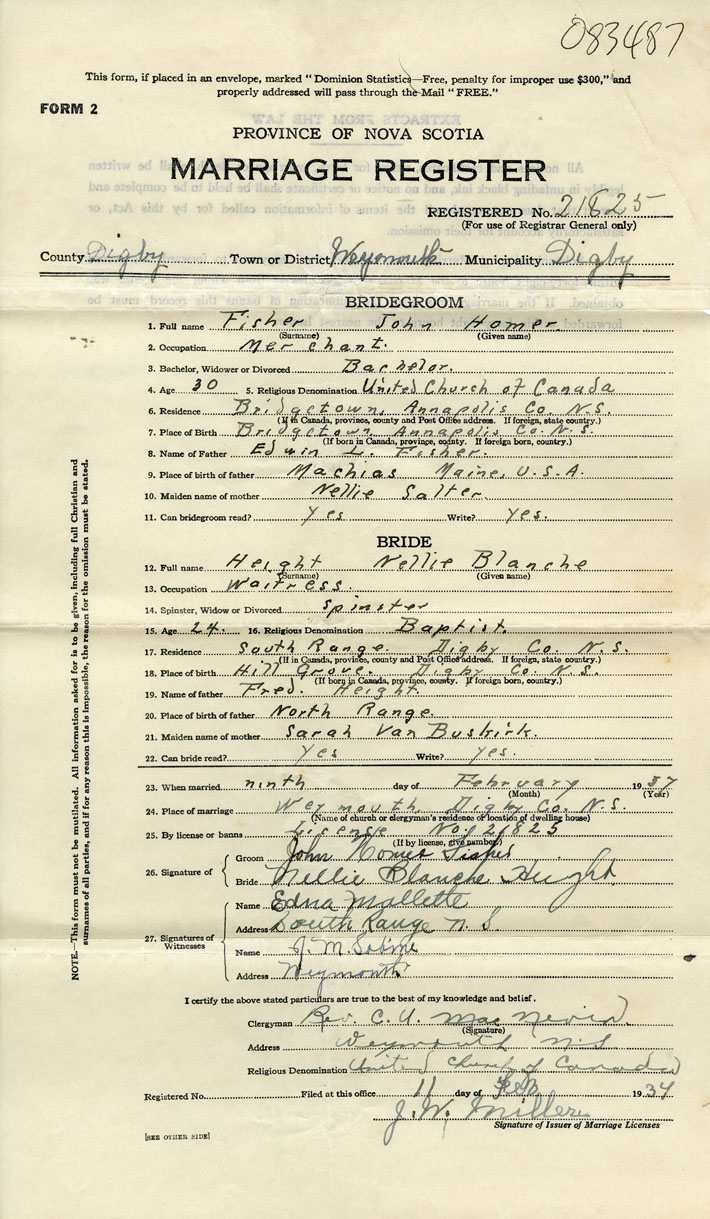 083487
This form, if placed in an envelope, marked "Dominion Statistics—Free, penalty for improper use $300," and
properly addressed will pass through the Mail "FREE."
FORM 2
PROVINCE OF NOVA SCOTIA
MARRIAGE REGISTER
REGISTERED No. 21825
(For use of Registrar General only)
County Digby Town or District Weymouth Municipality Digby
BRIDEGROOM
1. Full name Fisher John Homer
(Surname) (Given name)
2. Occupation Merchant.
3. Bachelor, Widower or Divorced Bachelor.
4. Age 30 5. Religious Denomination United Church of Canada
6. Residence Bridgetown, Annapolis Co. N.S.
(If in Canada, province, county and Post Office address. If foreign, state country.)
7. Place of Birth Bridgetown, Annapolis Co. N.S.
(If born in Canada, province, county. If foreign born, country.)
8. Name of Father Edwin L. Fisher.
9. Place of birth of father Machias Maine, U.S.A.
10. Maiden name of mother Nellie Salter.
11. Can bridegroom read? Yes Write? Yes.
BRIDE
12. Full name Height Nellie Blanche
(Surname) (Given name)
13. Occupation Waitress.
14. Spinster, Widow or Divorced Spinster
15. Age 24. 16. Religious Denomination Baptist.
17. Residence South Range. Digby Co. N.S.
(If in Canada, province, county and Post Office address. If foreign, state country.)
18. Place of birth Hill Grove. Digby Co. N.S.
(If born in Canada, province, county. If foreign born, country.)
19. Name of father Fred. Height.
20. Place of birth of father North Range.
21. Maiden name of mother Sarah Van Buskirk.
22. Can bride read? Yes Write? Yes.
23. When married ninth day of February 1937
(Month) (Year)
24. Place of marriage Weymouth Digby Co. N.S.
(Name of church or clergyman's residence or location of dwelling house)
25. By license or banns License No. 21825
(If by license, give number)
26. Signature of
Groom John Homer Fisher
Bride Nellie Blanche Height
27. Signatures of Witnesses
Name Edna Mallette
Address South Range N.S.
Name J. M. Sabine
Address Weymouth
I certify the above stated particulars are true to the best of my knowledge and belief.
Clergyman Rev. C. U. MacNevin.
(Signature)
Address Weymouth N.S
Religious Denomination United Church of Canada
Registered No. Filed at this office 11 day of Feb 1937
J. W. Miller
Signature of Issuer of Marriage Licenses
[SEE OTHER SIDE]
NOTE.—This form must not be mutilated. All information asked for is to be given, including full Christian and
surnames of all parties, and if for any reason this is impossible, the reason for the omission must be stated.